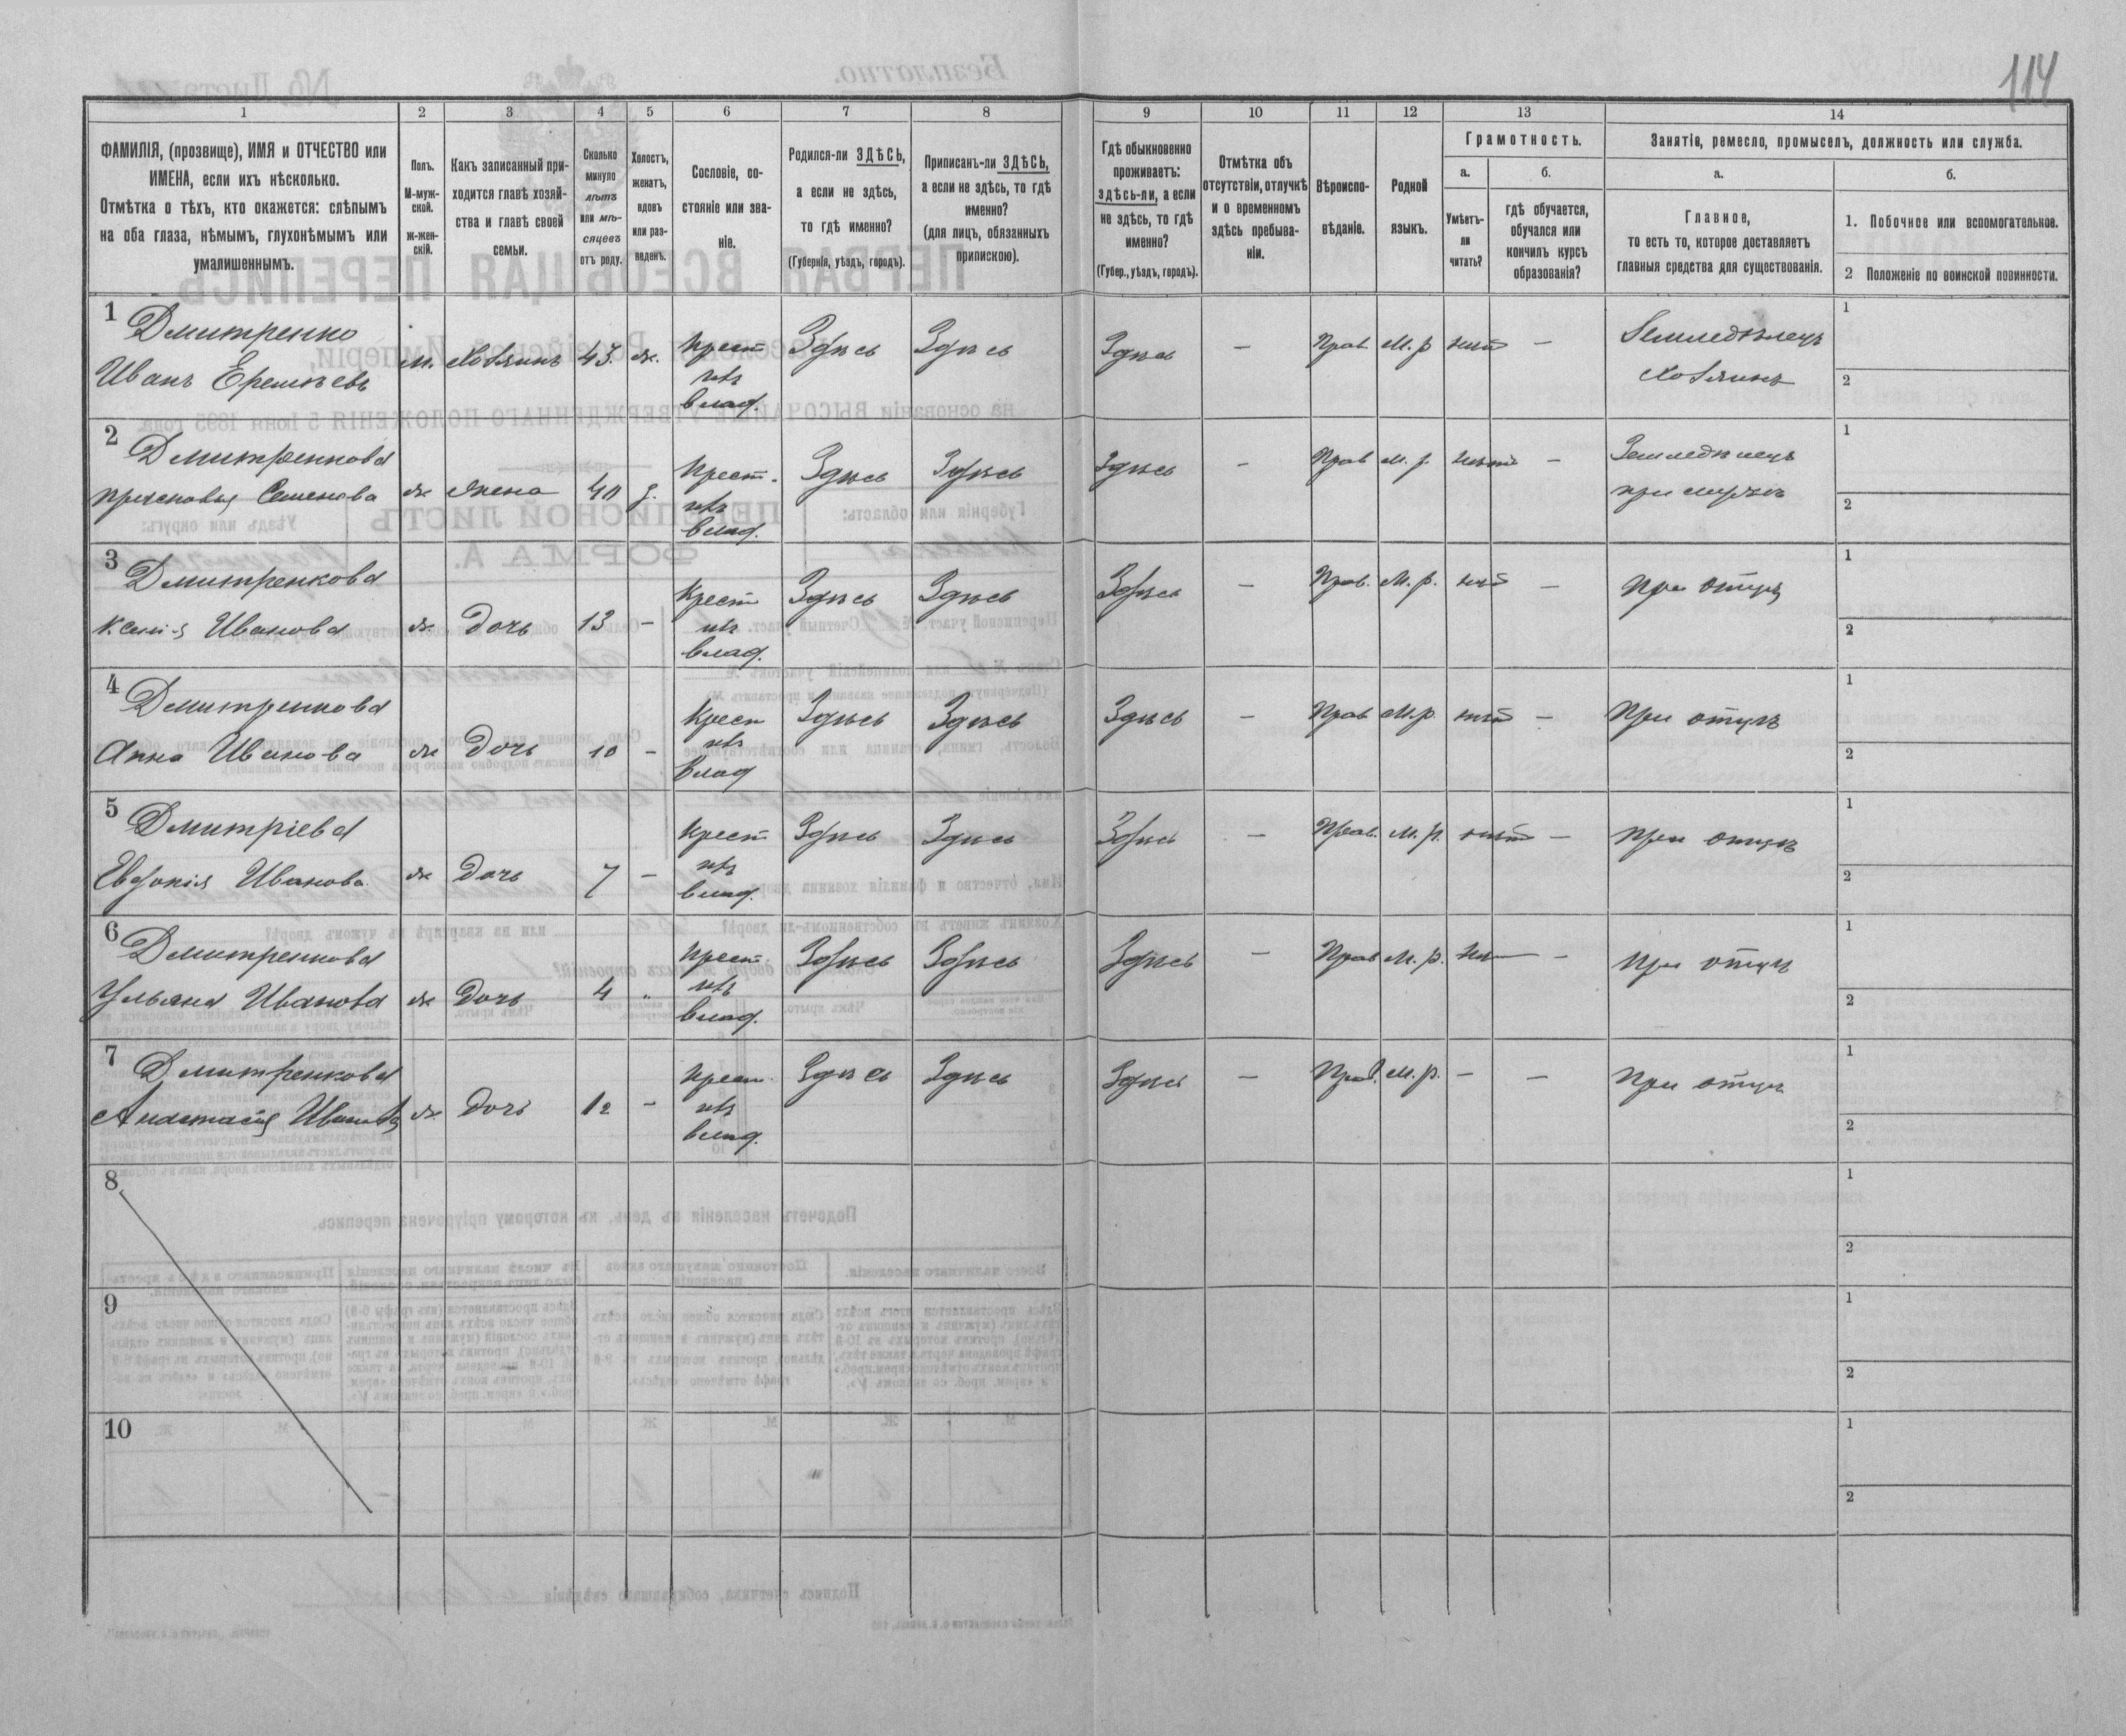 114
1 2 3 4 5 6 7 8 9 10 11 12 13 14
ФАМИЛІЯ, (прозвище), ИМЯ и ОТЧЕСТВО или
ИМЕНА, если ихъ нѣсколько.
Отмѣтка о тѣхъ, кто окажется: слѣпымъ
на оба глаза, нѣмымъ, глухонѣмымъ или
умалишеннымъ.
Полъ.
М-муж-
ской.
ж-жен-
скій.
Какъ записанный при-
ходится главѣ хозяй-
ства и главѣ своей
семьи.
Сколько
минуло
лѣтъ
или мѣ-
сяцевъ
отъ роду.
Холостъ,
женатъ,
вдовъ
или раз-
веденъ.
Сословіе, со-
стояніе или зва-
ніе.
Родился-ли ЗДѢСЬ,
а если не здѣсь,
то гдѣ именно?
(Губернія, уѣздъ, городъ).
Приписанъ-ли ЗДѢСЬ,
а если не здѣсь, то гдѣ
именно?
(для лицъ, обязанныхъ
припискою).
Гдѣ обыкновенно
проживаетъ:
здѣсь-ли, а если
не здѣсь, то гдѣ
именно?
(Губер., уѣздъ, городъ).
Отмѣтка объ
отсутствіи, отлучкѣ
и о временномъ
здѣсь пребыва-
ніи.
Вѣроиспо-
вѣданіе.
Родной
языкъ.
Грамотность.
а.
Умѣетъ-
ли
читать?
б.
гдѣ обучается,
обучался или
кончилъ курсъ
образованія?
Занятіе, ремесло, промыселъ, должность или служба.
а.
Главное,
то есть то, которое доставляетъ
главныя средства для существованія.
б.
1. Побочное или вспомогательное.
2 Положеніе по воинской повинности.
1 Дмитренко
Иванъ Еремѣевъ
м. Хозяинъ 43. ж. Крест
изъ
влад. Здѣсь Здѣсь Здѣсь — Прав. М. р нѣт — Земледѣлецъ
Хозяинъ
1
2
2 Дмитренкова
Прасковья Семенова
ж жена 40 з. Крест.
изъ
влад. Здѣсь Здѣсь Здѣсь — Прав М. р. нѣт — Земледѣлецъ
при мужѣ
1
2
3 Дмитренкова
Ксенія Иванова
ж. Дочь 13 — Крест
изъ
влад. Здѣсь Здѣсь Здѣсь — Прав. М. р. нѣт — При отцѣ
1
2
4 Дмитренкова
Анна Иванова
ж Дочь 10 — Крест
изъ
влад Здѣсь Здѣсь Здѣсь — Прав М. р нѣт — При отцѣ
1
2
5 Дмитріева
Евдокія Иванова
ж Дочь 7 — Крест
изъ
влад. Здѣсь Здѣсь Здѣсь — Прав. М. р. нѣт — При отцѣ
1
2
6 Дмитренкова
Ульяна Иванова
ж Дочь 4 „ Крест.
изъ
влад. Здѣсь Здѣсь Здѣсь — Прав М. р. нѣт — При отцѣ
1
2
7 Дмитренкова
Анастасія Иванова
ж. Дочь — Крест
изъ
влад. Здѣсь Здѣсь Здѣсь — Прав. М. р. — — При отцѣ
1
2
8
1
2
9
1
2
10
1
2